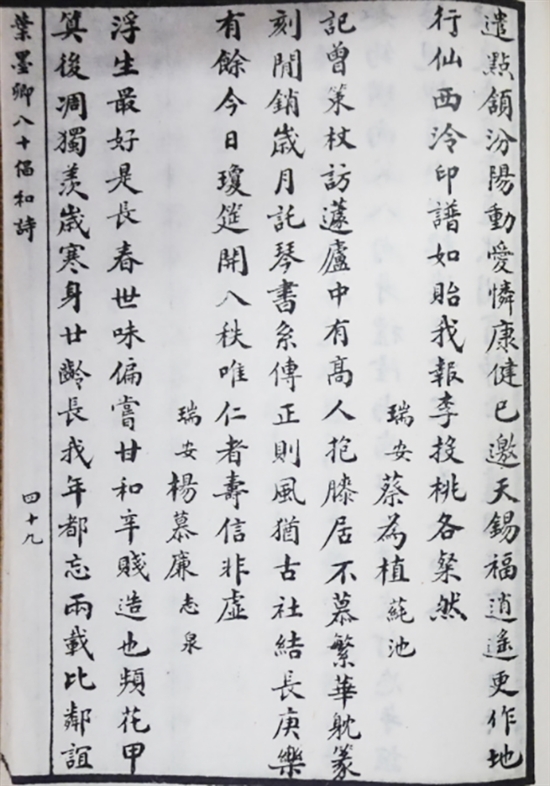 遣點頷汾陽動愛憐康健已邀天錫福逍遙更作地
行仙西泠印譜如貽我報李投桃各粲然
瑞安蔡為植蒓池
記曾策杖訪蘧廬中有高人抱膝居不慕繁華躭篆
刻閒銷歲月託琴書系傳正則風猶古社結長庚樂
有餘今日瓊筵開八秩唯仁者壽信非虛
瑞安楊慕廉志泉
浮生最好是長春世味偏嘗甘和辛賤造也頻花甲
算後凋獨羨歲寒身廿齡長我年都忘兩載比鄰誼
葉墨卿八十倡和詩
四十九